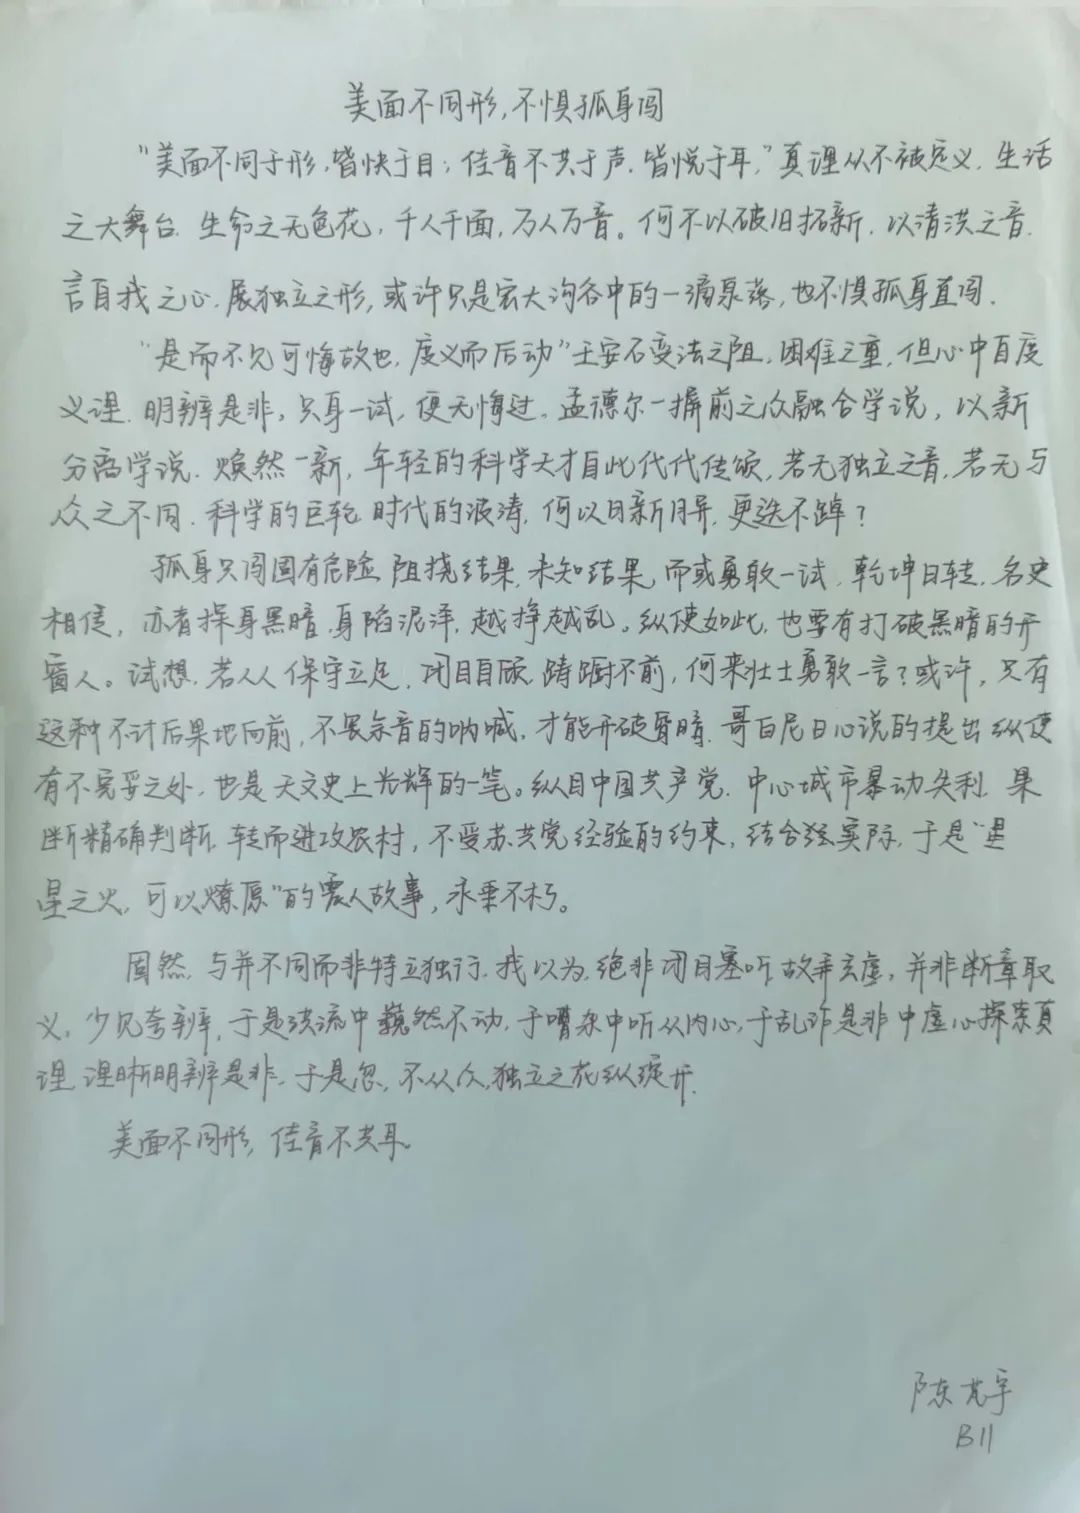 美面不同形,不惧孤身闯
"美面不同于形,皆快于目;佳音不共于声.皆悦于耳,"真理从不被定义.生活
之大舞台.生命之无色花,千人千面,万人万音。何不以破旧拓新.以清洪之音.
言自我之心.展独立之形,或许只是宏大沟谷中的一滴泉落,也不惧孤身直闯.
"是而不见可悔故也,度义而后动"王安石变法之阻,困难之重,但心中自度
义理.明辨是非,只身一试,便无悔过。孟德尔一摒前之众融合学说,以新
分离学说.焕然一新,年轻的科学天才自此代代传颂,若无独立之音,若无与
众之不同.科学的巨轮.时代的波涛.何以日新月异.更迭不踔?
孤身只闯固有危险.阻挠结果,未知结果,而或勇敢一试,乾坤日转.名史
相传,亦者探身黑暗,身陷泥泽,越挣越乱。纵使如此,也要有打破黑暗的开
窗人。试想,若人人保守立足.闭目自顾.踌蹰不前,何来壮士勇敢一言?或许,只有
这种不计后果地向前,不畏余音的呐喊,才能开破昏暗.哥白尼日心说的提出纵使
有不完妥之处,也是天文史上光辉的一笔。纵目中国共产党.中心城市暴动失利.果
断精确判断.转而进攻农村,不受苏共党经验的约束,结合实际,于是"星
星之火,可以燎原"的震人故事,永垂不朽。
固然,与并不同而非特立独行.我以为,绝非闭目塞听故弄玄虚,并非断章取
义,少见夸辨,于是流中巍然不动,于嘈杂中听从内心,于乱诈是非中虚心探索真
理,理晰明辨是非,于是忽,不从众,独立之花纵绽开.
美面不同形,佳音不共耳。
陈芃宇
B11